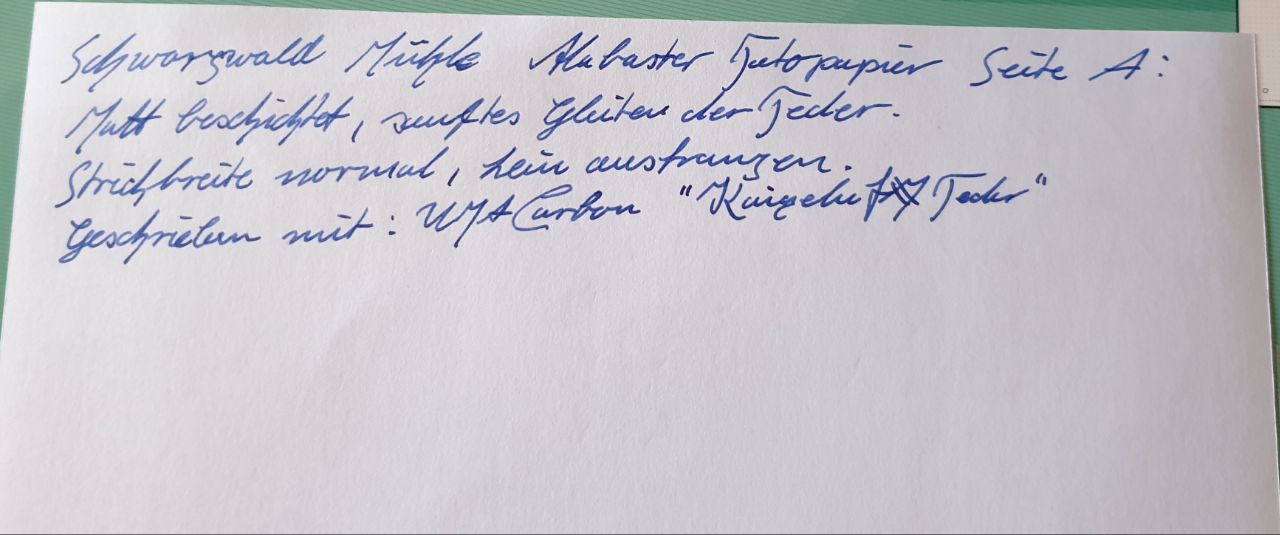 Schwarzwald Mühle Alabaster Fotopapier Seite A:
Matt beschichtet, sanftes Gleiten der Feder.
Strichbreite normal, kein ausfranzen.
Geschrieben mit: Carbon " Feder"